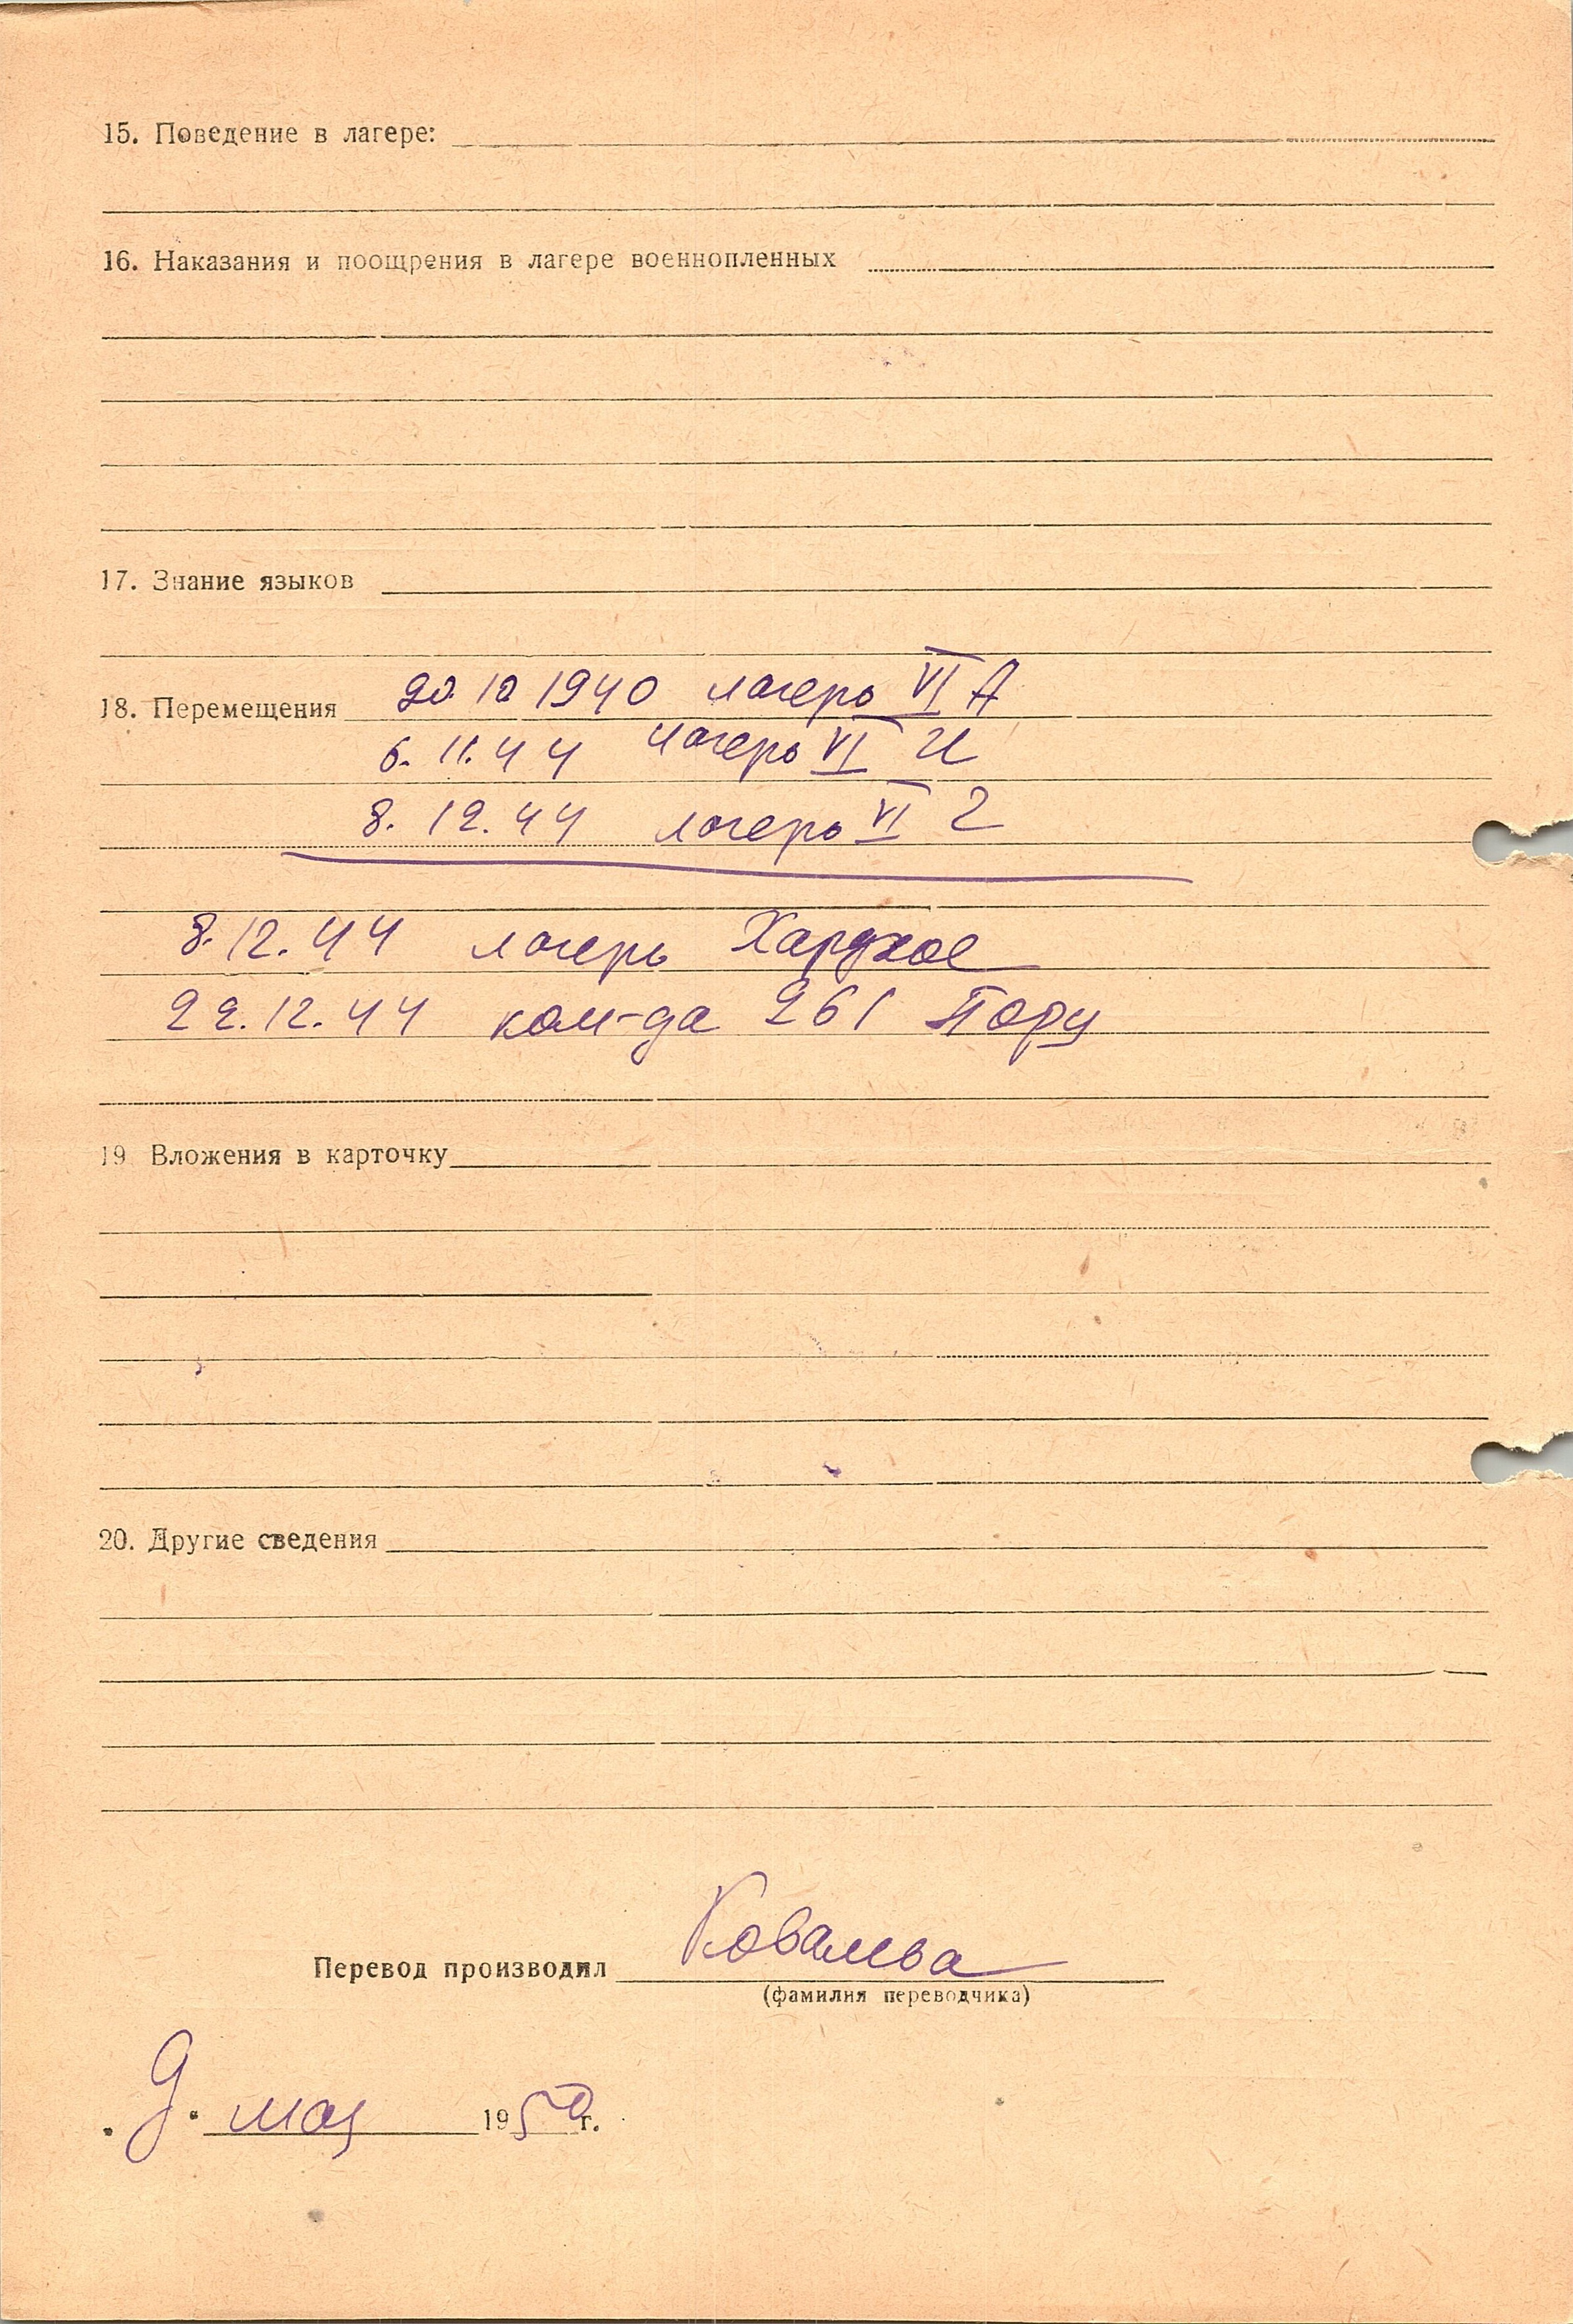 15. Поведение в лагере:
16. Наказания и поощрения в лагере военнопленных
17. Знание языков
18. Перемещения 20 10 1940 лагерь VI А
6. 11. 44 лагерь VI И
8. 12. 44 лагерь VI 2
8. 12. 44 лагерь
22. 12. 44 ком-да 261 Порц
19 Вложения в карточку
20. Другие сведения
Перевод производил Ковалева
(фамилия переводчика)
9. мая 1950 г.